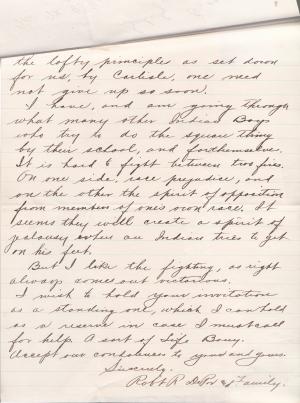 the lofty principle as set down
for us, by Carlisle, one need
not give up so soon.
I have, and am going through
what many other Indian Boys
who try to do the square thing
by their school, and forthemselves.
It is hard to fight between two fires.
On one side, race prejudice, and
on the other the spirit of opposition
from members of ones own race. It
seems they will create a spirit of
jealousy when an Indian tries to get
on his feet.
But I like the fighting, as right
always comes out victorious.
I wish to hold your invitation
as a standing one, which I can hold
as a reserve in case I must call
for help. A sort of Life Bouy.
Accept our condolences to you and yours.
Sincerely.
Robt R. DePoe & Family.